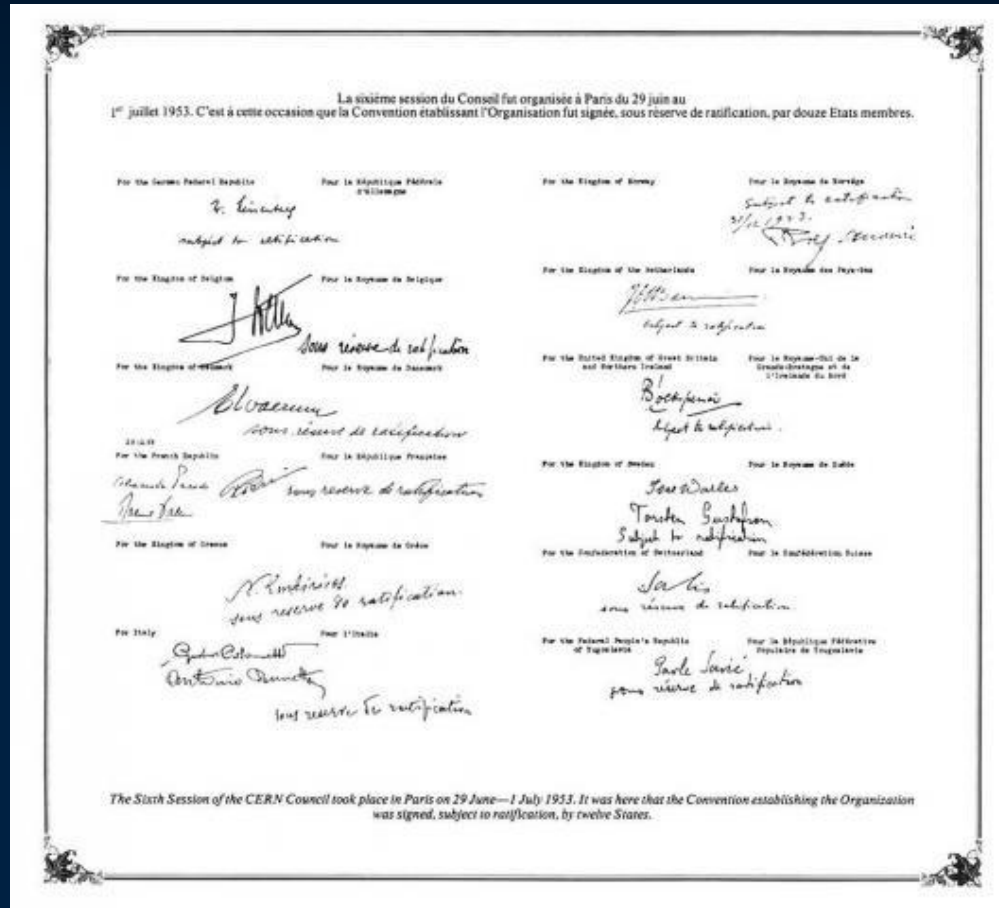 La sixième session du Conseil fut organisée à Paris du 29 juin au
1er juillet 1953. C'est à cette occasion que la Convention établissant l'Organisation fut signée, sous réserve de ratification, par douze Etats membres.
For the German Federal Republic
Pour la République Fédérale
d'Allemagne
subject to ratification
For the Kingdom of Belgium
Pour le Royaume de Belgique
sous réserve de ratification
For the Kingdom of Denmark
Pour le Royaume de Danemark
sous réserve de ratification
For the French Republic
Pour la République Française
sous reserve de ratification
For the Kingdom of Greece
Pour le Royaume de Grèce
sous reserve de ratification.
For Italy
Pour l'Italie
Antonio
sous reserve de ratification
For the Kingdom of Norway
Pour le Royaume de Norvège
Subject to ratification
For the Kingdom of the Netherlands
Pour le Royaume des Pays-Bas
subject to ratification
For the United Kingdom of Great Britain
and Northern Ireland
Pour le Royaume-Uni de la
Grande-Bretagne et de
l'Irelande du Nord
subject to ratification.
For the Kingdom of Sweden
Pour le Royaume de Suède
Torsten Gustafson
Subject to ratification
For the Confederation of Switzerland
Pour la Confédération Suisse
sous réserve de ratification.
For the Federal People's Republic
of Yugoslavia
Pour la République Fédérative
Populaire de Yougoslavie
Pavle Savić
sous réserve de ratification
The Sixth Session of the CERN Council took place in Paris on 29 June—1 July 1953. It was here that the Convention establishing the Organization
was signed, subject to ratification, by twelve States.